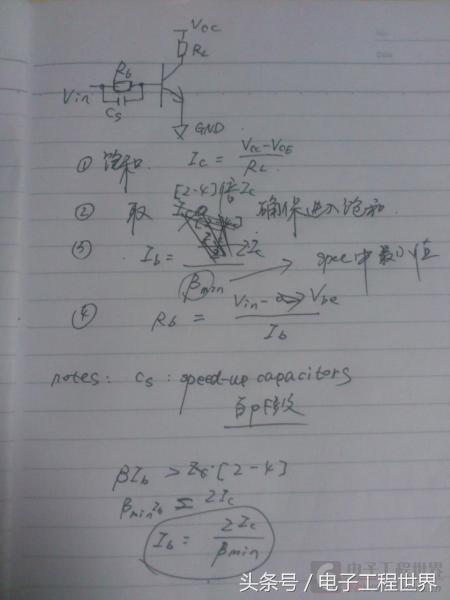 Vcc
RL
Rb
Vin
Cs
GND
① 饱和. Ic = (Vcc-VCE)/RL
② 取 [2-4]倍Ic 确保进入饱和.
③ Ib = 2Ic/βmin → spec中最小值
④ Rb = (Vin-Vbe)/Ib
notes: Cs: speed-up capacitors
百pF级
βIb > Ic·[2-4]
βmin Ib = 2Ic
Ib = 2Ic/βmin
电子工程世界
头条号/电子工程世界